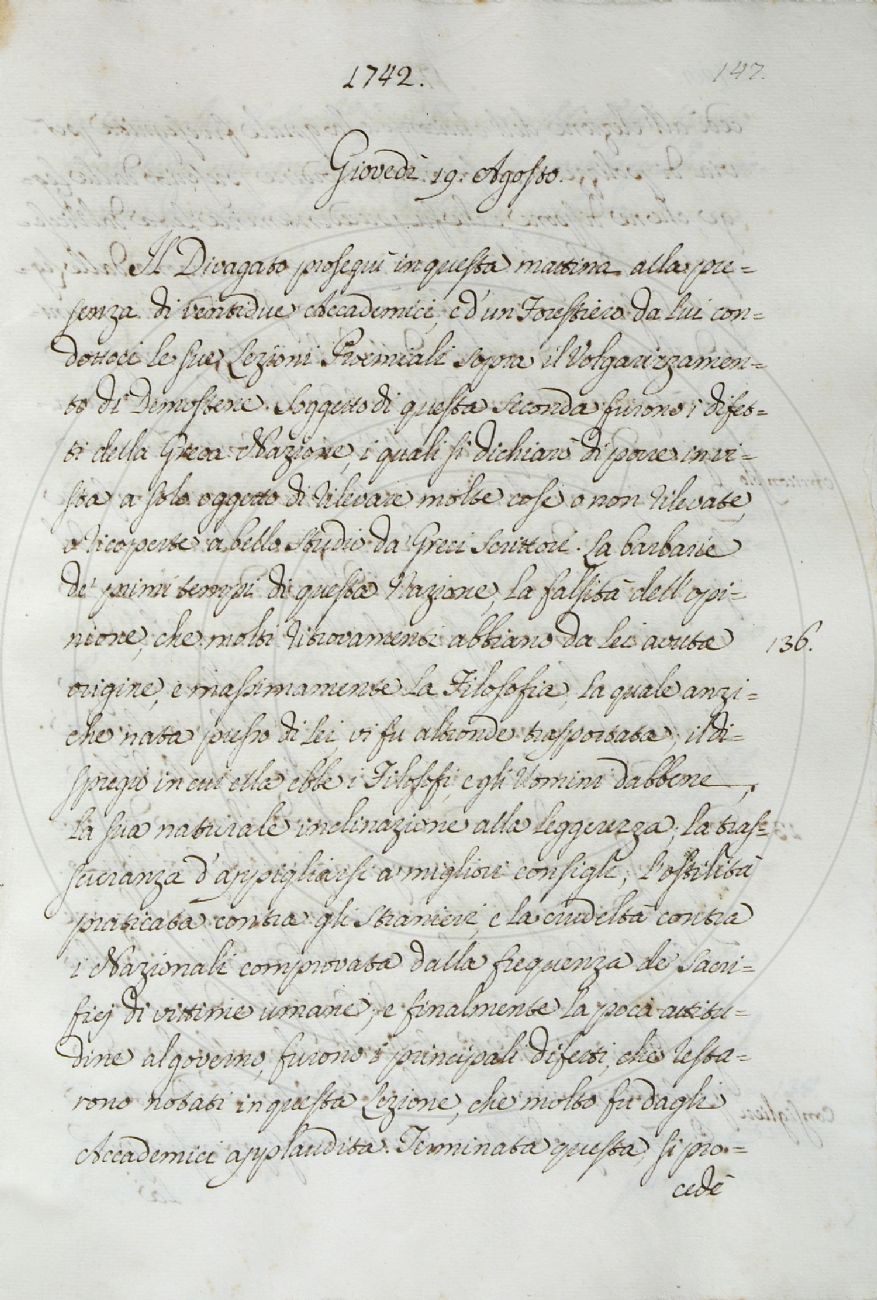 1742.
147.
Giovedì 19. Agosto.
Il Divagato proseguì in questa mattina alla pre=
senza di ventidue Accademici, e d'un Forestiero da lui con=
dottoci le sue Lezioni Proemiali sopra il Volgarizzamen=
to di Demostene. Soggetto di questa seconda furono i difet=
ti della Greca Nazione, i quali si dichiarò di porre in vi=
sta a solo oggetto di rilevare molte cose o non rilevate,
o ricoperte a bello studio da Greci Scrittori. La barbarie
de' primi tempi di questa Nazione, la falsità dell'opi=
nione, che molti ritrovamenti abbiano da lei avuta
136.
origine, e massimamente la Filosofia, la quale anzi=
che nata presso di lei, vi fu altronde trasportata; il di=
spregio in cui ella ebbe i Filosofi, e gli Uomini dabbene,
la sua naturale inclinazione alla leggerezza; la tras=
curanza d'appigliarsi a migliori consigli; l'ostilità
praticata contra gli Stranieri, e la crudeltà contra
i Nazionali comprovata dalla frequenza de' Sacri=
ficj di vittime umane, e finalmente la poca attitu=
dine al governo, furono i principali difetti, che resta=
rono notati in questa Lezione, che molto fu dagli
Accademici applaudita. Terminata questa, si pro=
cedè